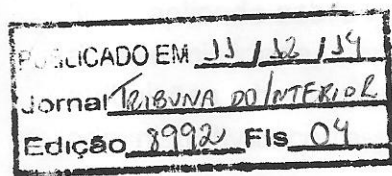 PUBLICADO EM 11 / 12 / 14
Jornal TRIBUNA DO INTERIOR
Edição 8992 Fls 04